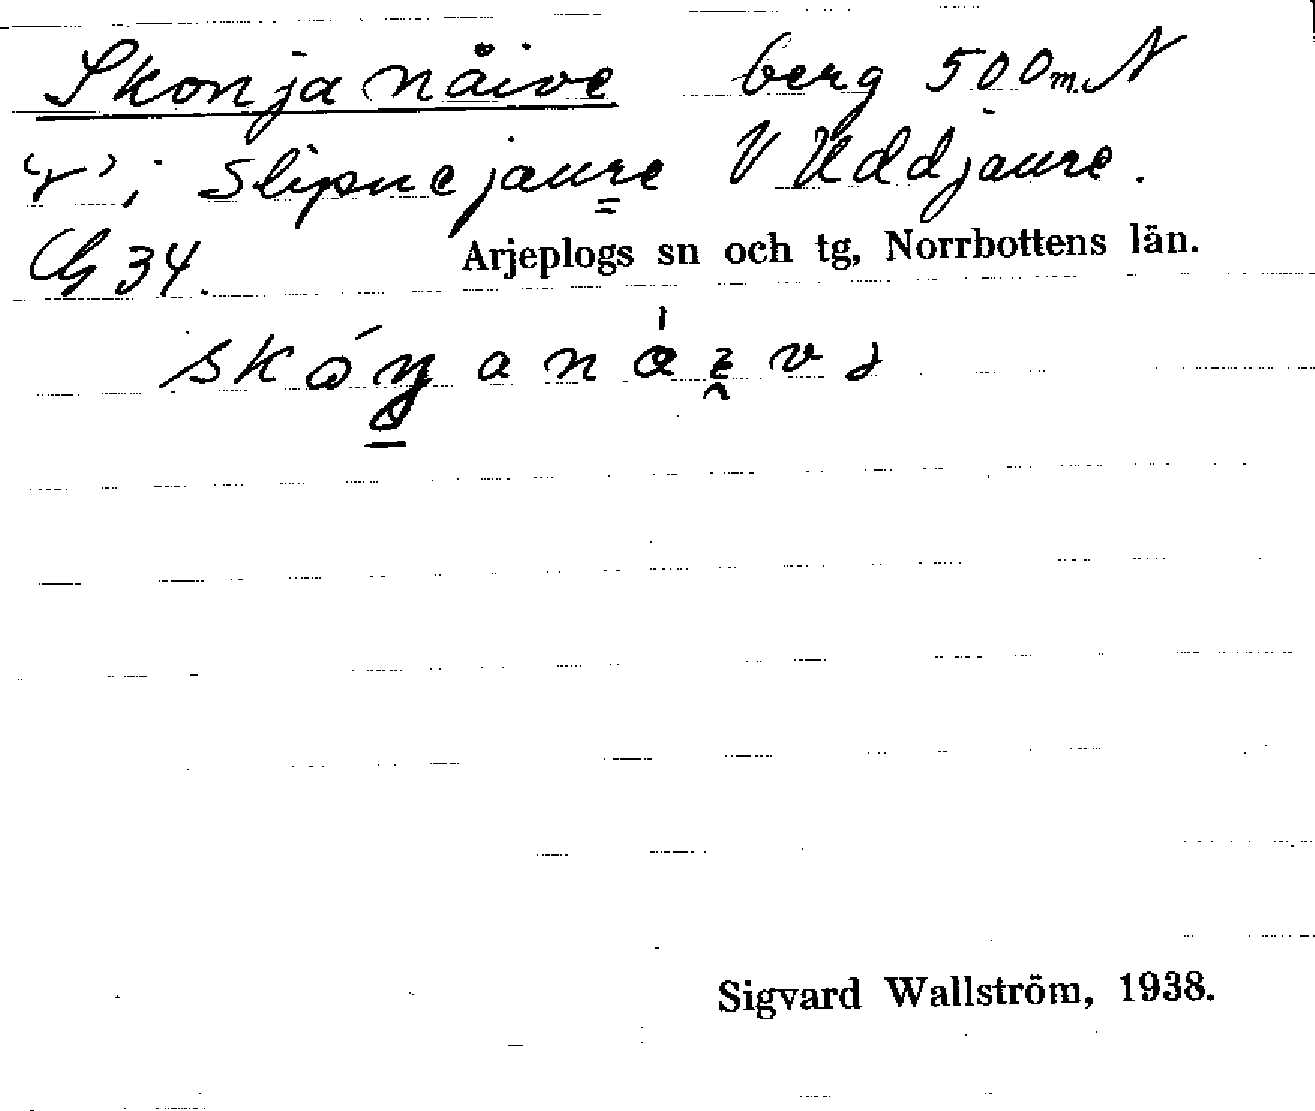 Skonjanåive berg 500 m N
"r" i Slipnejaure V Uddjaure.
G 34. Arjeplogs sn och tg, Norrbottens län.
Sigvard Wallström, 1938.